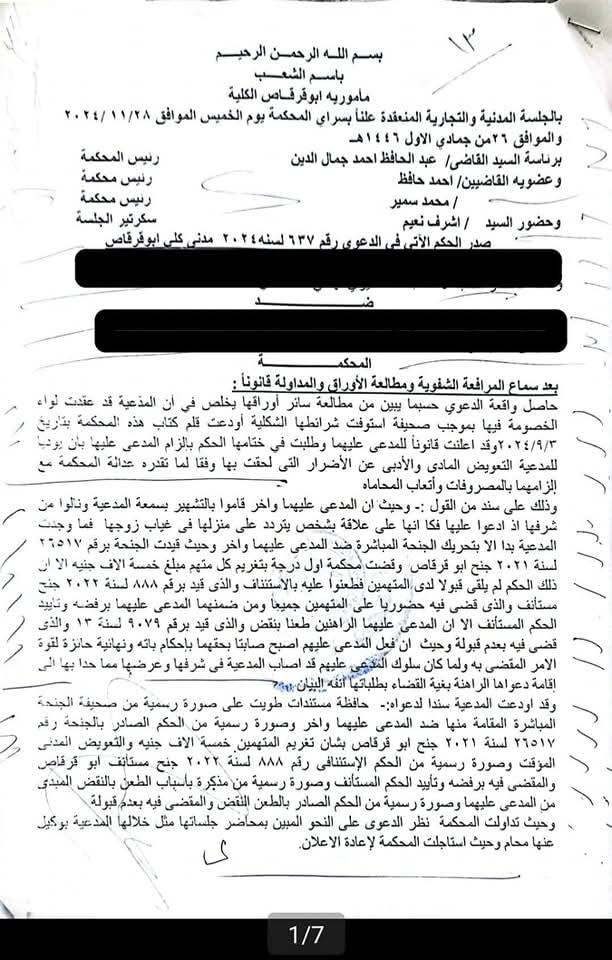 ١٣
بسم الله الرحمن الرحيم
باسم الشعب
مأموريه ابوقرقاص الكلية
بالجلسة المدنية والتجارية المنعقدة علناً بسراي المحكمة يوم الخميس الموافق ٢٠٢٤/١١/٢٨
والموافق ٢٦من جمادي الاول ١٤٤٦هـ
برئاسة السيد القاضى/ عبد الحافظ احمد جمال الدين رئيس المحكمة
وعضويه القاضيين/ احمد حافظ رئيس محكمة
/ محمد سمير رئيس محكمة
وحضور السيد / اشرف نعيم سكرتير الجلسة
صدر الحكم الآتي في الدعوي رقم ٦٣٧ لسنه ٢٠٢٤ مدنى كلي ابوقرقاص
ضد
المحكمة
بعد سماع المرافعة الشفوية ومطالعة الأوراق والمداولة قانوناً :
حاصل واقعة الدعوي حسبما يبين من مطالعة سائر أوراقها يخلص في أن المدعية قد عقدت لواء
الخصومة فيها بموجب صحيفة استوفت شرائطها الشكلية أودعت قلم كتاب هذه المحكمة بتاريخ
٢٠٢٤/٩/٣ وقد اعلنت قانوناً للمدعى عليهما وطلبت في ختامها الحكم بإلزام المدعى عليها بان يوديا
للمدعية التعويض المادى والأدبى عن الأضرار التى لحقت بها وفقا لما تقدره عدالة المحكمة مع
إلزامهما بالمصروفات وأتعاب المحاماه
وذلك على سند من القول :- وحيث ان المدعى عليهما واخر قاموا بالتشهير بسمعة المدعية ونالوا من
شرفها اذ ادعوا عليها فكا انها على علاقة بشخص يتردد على منزلها فى غياب زوجها فما وجدت
المدعية بدا الا بتحريك الجنحة المباشرة ضد المدعى عليهما واخر وحيث قيدت الجنحة برقم ٢٦٥١٧
لسنة ٢٠٢١ جنح ابو قرقاص وقضت محكمة اول درجة بتغريم كل متهم مبلغ خمسة الاف جنيه الا ان
ذلك الحكم لم يلقى قبولا لدى المتهمين فطعنوا عليه بالاستئناف والذى قيد برقم ٨٨٨ لسنة ٢٠٢٢ جنح
مستأنف والذى قضى فيه حضوريا على المتهمين جميعا ومن ضمنهما المدعى عليهما برفضه وتأييد
الحكم المستأنف الا ان المدعى عليهما الراهنين طعنا بنقض والذى قيد برقم ٩٠٧٩ لسنة ١٣ والذى
قضى فيه بعدم قبولة وحيث ان فعل المدعى عليهم اصبح صابتا بحقهما بإحكام باته ونهائية حائزة لقوة
الامر المقضى به ولما كان سلوك المدعى عليهم قد اصاب المدعية فى شرفها وعرضها مما حدا بها الى
إقامة دعواها الراهنة بغية القضاء بطلباتها آنفه البيان
وقد اودعت المدعية سندا لدعواه:- حافظة مستندات طويت على صورة رسمية من صحيفة الجنحة
المباشرة المقامة منها ضد المدعى عليهما واخر وصورة رسمية من الحكم الصادر بالجنحة رقم
٢٦٥١٧ لسنة ٢٠٢١ جنح ابو قرقاص بشان تغريم المتهمين خمسة الاف جنيه والتعويض المدنى
المؤقت وصورة رسمية من الحكم الإستئنافى رقم ٨٨٨ لسنة ٢٠٢٢ جنح مستأنف ابو قرقاص
والمقضى فيه برفضه وتأييد الحكم المستأنف وصورة رسمية من مذكرة بأسباب الطعن بالنقض المبدى
من المدعى عليهما وصورة رسمية من الحكم الصادر بالطعن النقض والمقضى فيه بعدم قبولة
وحيث تداولت المحكمة نظر الدعوى على النحو المبين بمحاضر جلساتها مثل خلالها المدعية بوكيل
عنها محام وحيث استاجلت المحكمة لإعادة الاعلان.
1/7